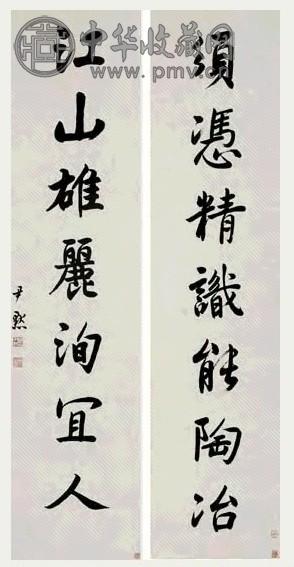 中华收藏网
www.pmv.cn
須憑精識能陶冶
江山雄麗洵宜人
尹默